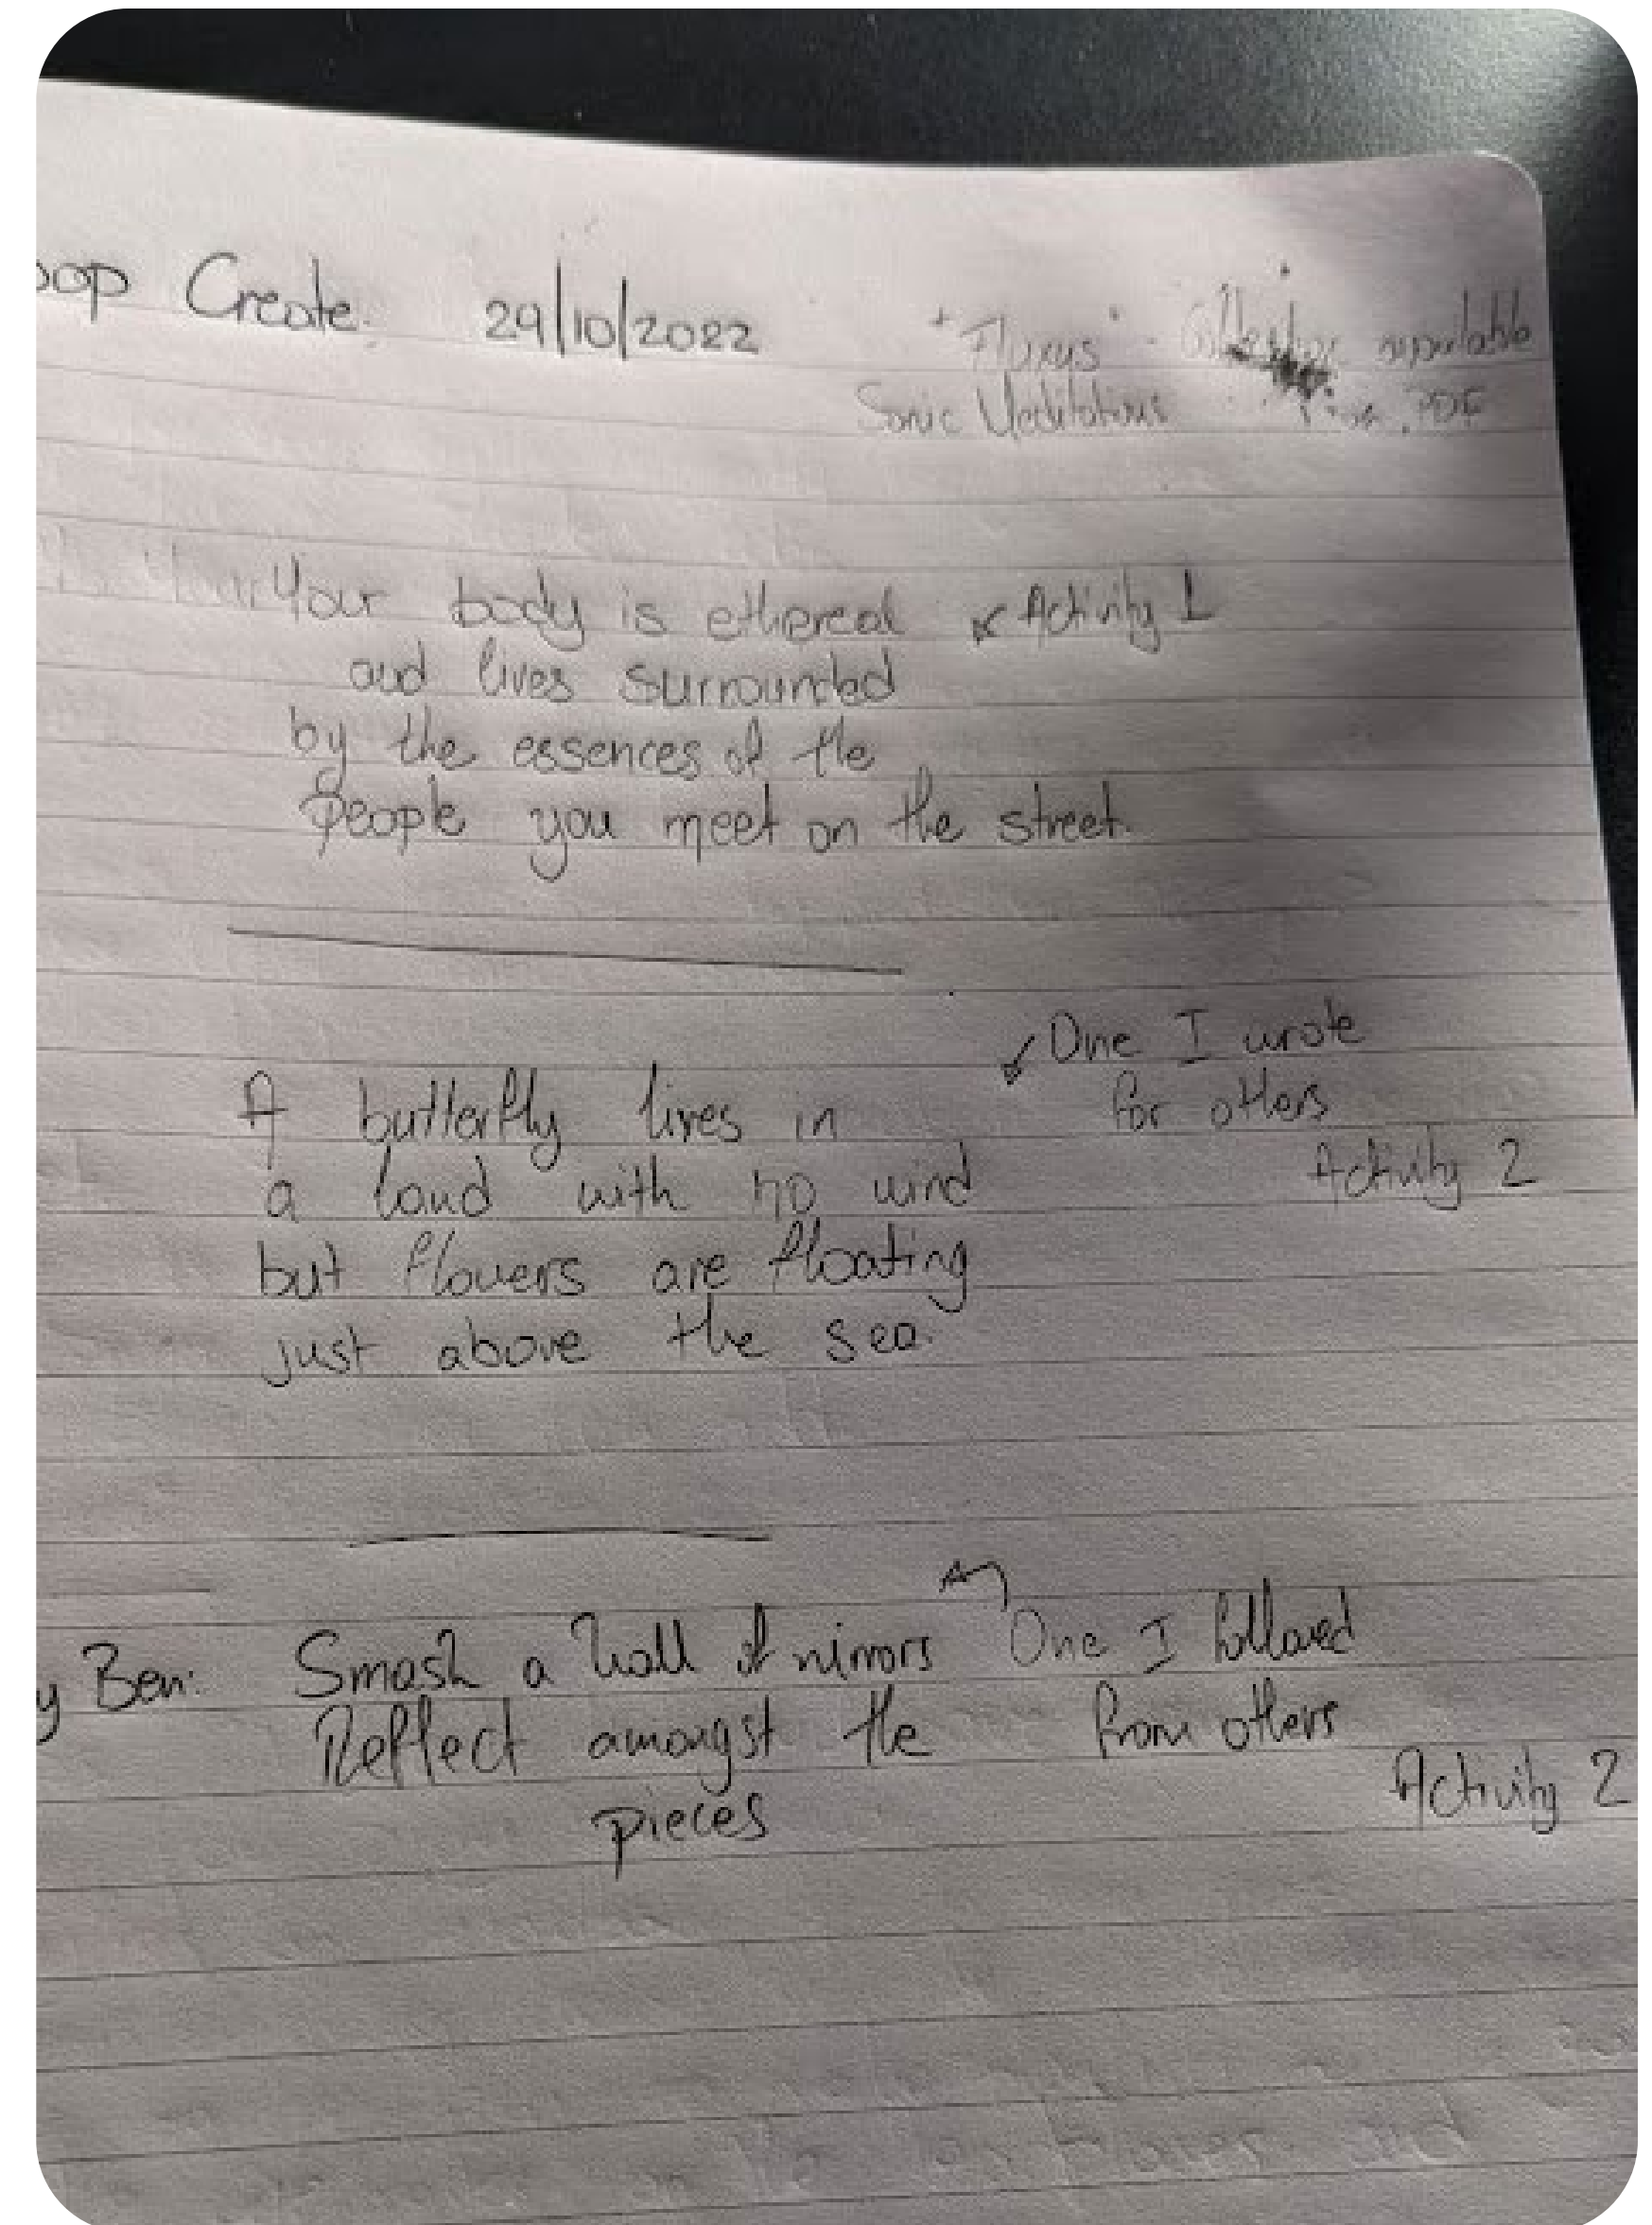 oop Create. 29/10/2022
"Fluxus" - available
Sonic Meditations PDF
Your body is ethereal
Activity 1
and lives surrounded
by the essences of the
people you meet on the street.
One I wrote
for others
Activity 2
A butterfly lives in
a land with no wind
but flowers are floating
just above the sea.
y Ben: Smash a hall of mirrors
Reflect amongst the
pieces
One I followed
from others
Activity 2